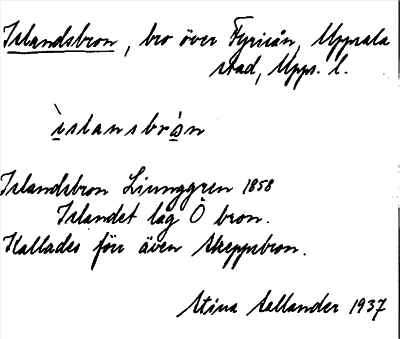 Islandsbron, bro över Fyrisån, Uppsala
stad, Upps. l.
ìslansbrò̱n
Islandsbron Ljunggren 1858
Islandet låg Ö bron.
Kallades förr även Skeppsbron.
Stina Aallander 1937